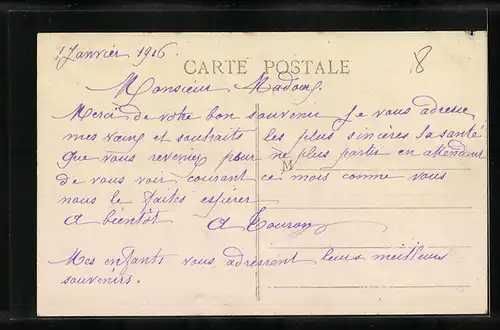 1 Janvier 1916
8
CARTE POSTALE
Monsieur Madoug.
Merci de votre bon souvenir Je vous adresse
mes vœux et souhaits les plus sincères la santé
que vous reveniez pour ne plus partir en attendant
M
de vous voir courant ce mois comme vous
nous le faites espérer
A bientôt A
Mes enfants vous adressent leurs meilleurs
souvenirs.